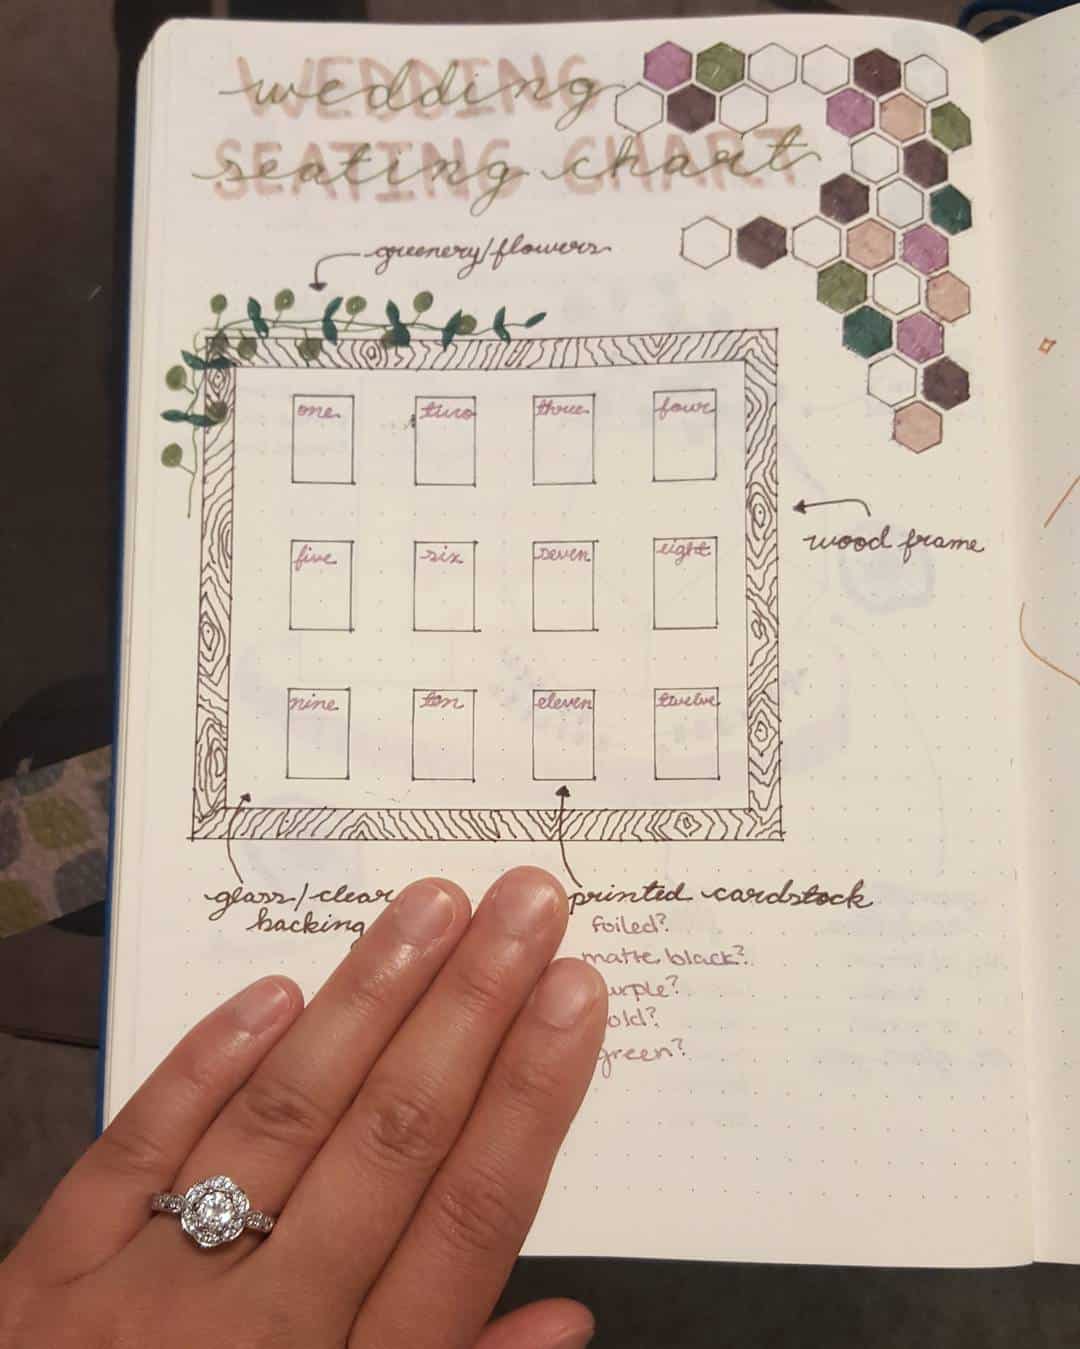 WEDDING
wedding
SEATING CHART
seating chart
greenery/flowers
one two three four
wood frame
five six seven eight
nine ten eleven twelve
glass/clear
backing
printed cardstock
foiled?
matte black?
urple?
old?
green?